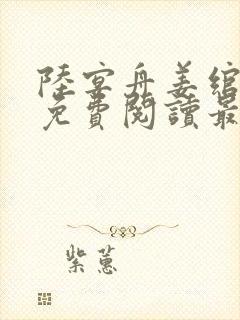 陸宴舟姜綰
免費閱讀最
紫蕙